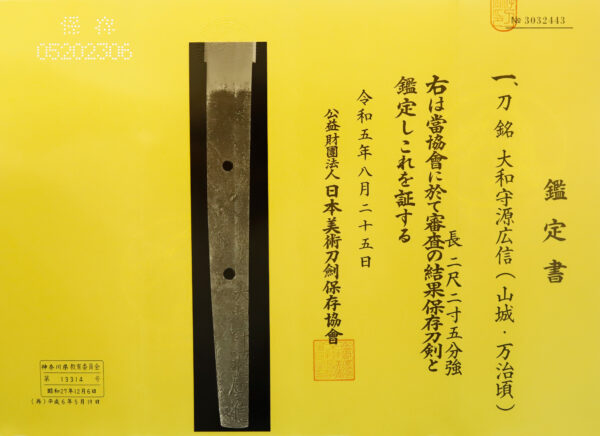 № 3032443
鑑定書
一、刀 銘 大和守源広信(山城・万治頃)
長 二尺二寸五分強
右は當協會に於て審査の結果保存刀剣と
鑑定しこれを証する
令和五年八月二十五日
公益財團法人 日本美術刀剣保存協會
保存
05202306
神奈川県教育委員会
第 13314 号
昭和27年12月6日
(再)平成6年5月19日